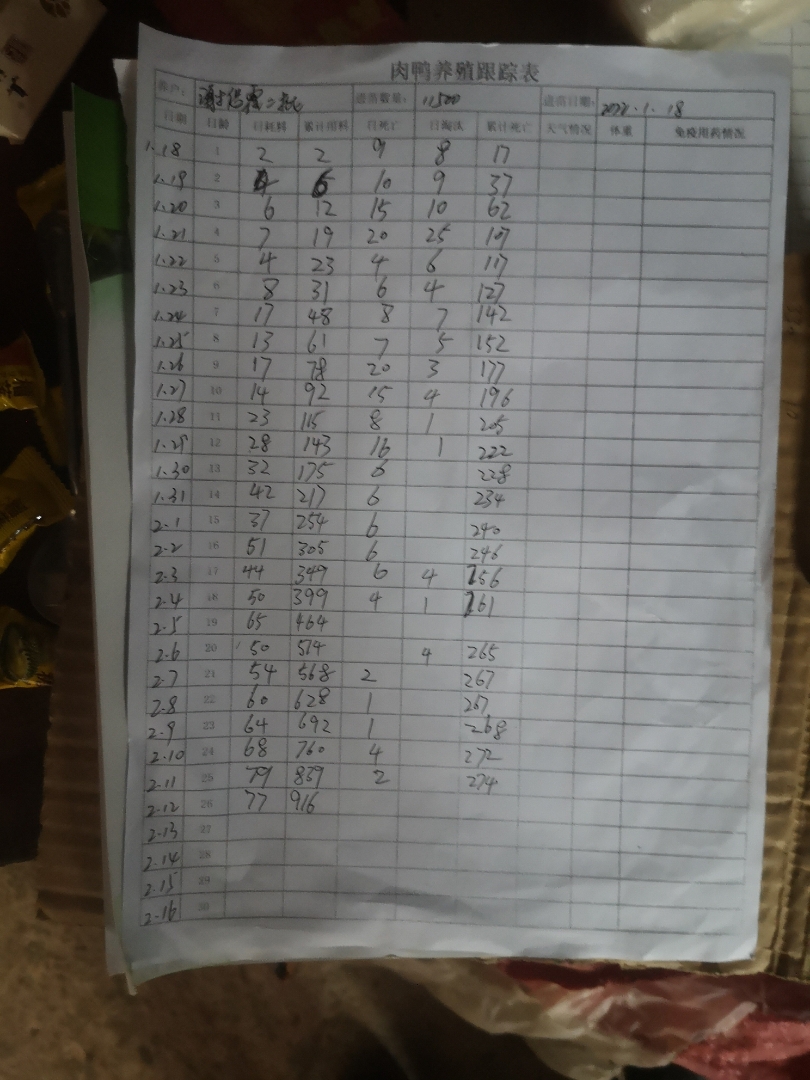 肉鸭养殖跟踪表
客户： 二批 进苗数量： 11500 进苗日期： 2022.1.18
日期 日龄 日耗料 累计用料 日死亡 日淘汰 累计死亡 天气情况 体重 免疫用药情况
1.18 1 2 2 9 8 17
1.19 2 4 6 10 9 37
1.20 3 6 12 15 10 62
1.21 4 7 19 20 25 107
1.22 5 4 23 4 6 117
1.23 6 8 31 6 4 127
1.24 7 17 48 8 7 142
1.25 8 13 61 7 5 152
1.26 9 17 78 20 3 177
1.27 10 14 92 15 4 196
1.28 11 23 115 8 1 205
1.29 12 28 143 16 1 222
1.30 13 32 175 6 228
1.31 14 42 217 6 234
2.1 15 37 254 6 240
2.2 16 51 305 6 246
2.3 17 44 349 6 4 256
2.4 18 50 399 4 1 261
2.5 19 65 464
2.6 20 50 514 4 265
2.7 21 54 568 2 267
2.8 22 60 628 1 267
2.9 23 64 692 1 268
2.10 24 68 760 4 272
2.11 25 79 839 2 274
2.12 26 77 916
2.13 27
2.14 28
2.15 29
2.16 30